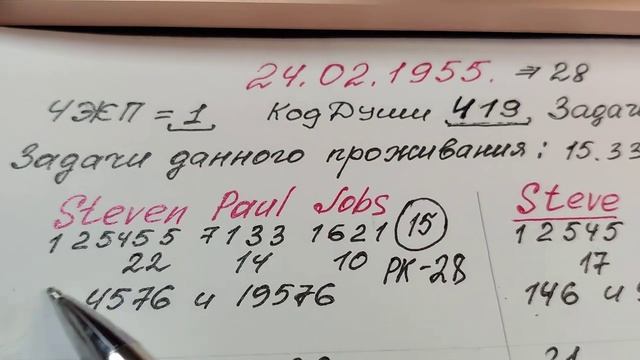 24.02.1955. ⇒ 28
ЧЭЖП = 1 Код Души 419 Задачи
Задачи данного проживания: 15.33
Steven Paul Jobs 15 Steve
125455 7133 1621 12545
22 14 10 РК-28 17
4576 и 19576 146 и
21